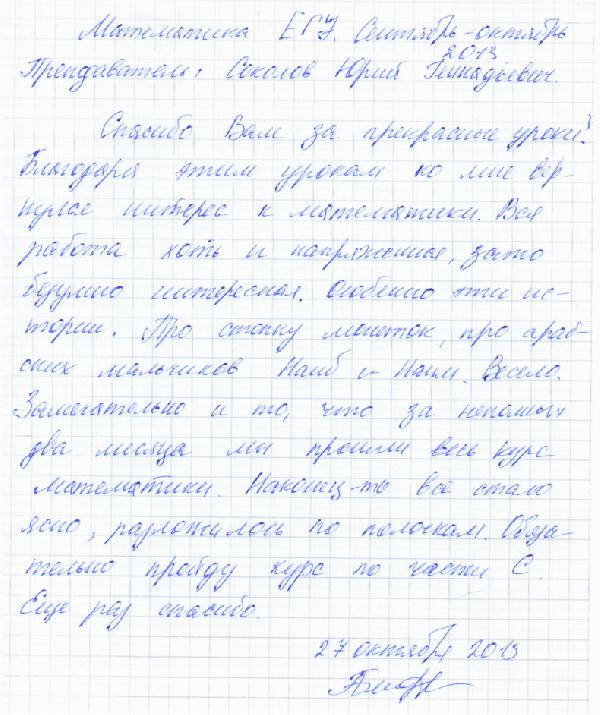 Математика ЕГЭ. Сентябрь-октябрь
2013
Преподаватель: Соколов Юрий Геннадьевич.
Спасибо Вам за прекрасные уроки!
Благодаря этим урокам ко мне вер-
нулся интерес к математики. Вся
работа хоть и напряженная, зато
безумно интересная. Особенно эти ис-
тории. Про стопку монеток, про араб-
ских мальчиков Наиб и Наим. Весело.
Замечательно и то, что за неполных
два месяца мы прошли весь курс
математики. Наконец-то все стало
ясно, разложилось по полочкам. Обяза-
тельно пройду курс по части С.
Еще раз спасибо.
27 октября 2013